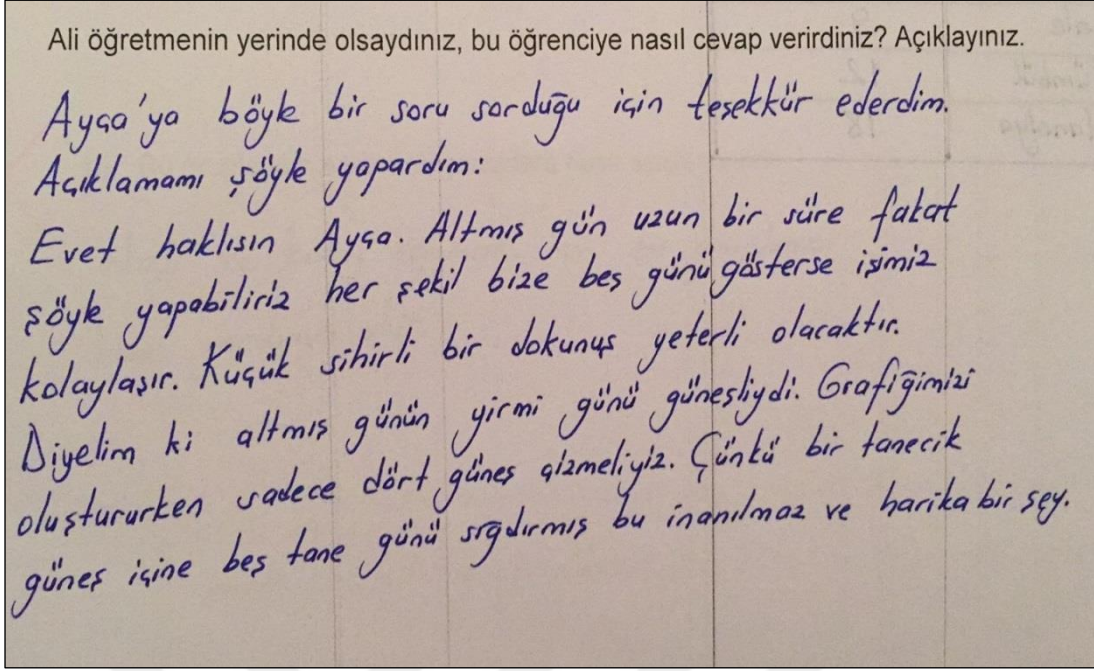 Ali öğretmenin yerinde olsaydınız, bu öğrenciye nasıl cevap verirdiniz? Açıklayınız.
Ayça'ya böyle bir soru sorduğu için teşekkür ederdim.
Açıklamamı şöyle yapardım:
Evet haklısın Ayça. Altmış gün uzun bir süre fakat
şöyle yapabiliriz her şekil bize beş günü gösterse işimiz
kolaylaşır. Küçük sihirli bir dokunuş yeterli olacaktır.
Diyelim ki altmış günün yirmi günü güneşliydi. Grafiğimizi
oluştururken sadece dört güneş çizmeliyiz. Çünkü bir tanecik
güneş içine beş tane günü sığdırmış bu inanılmaz ve harika bir şey.